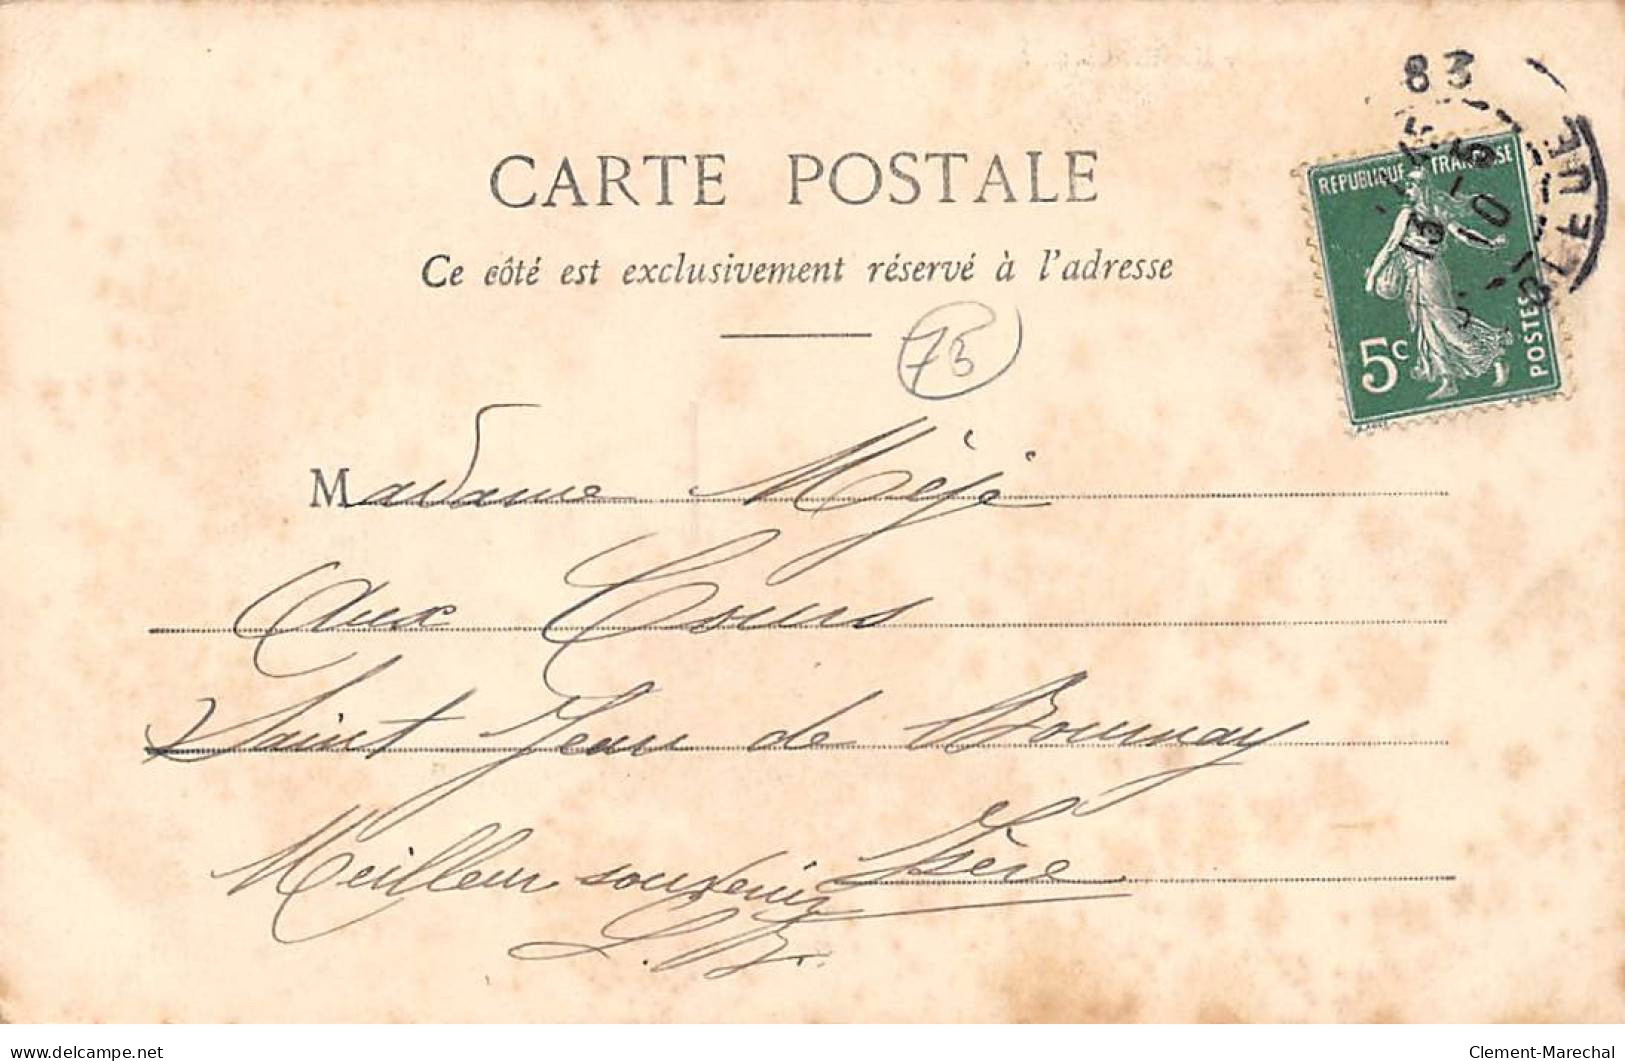 83
CARTE POSTALE
REPUBLIQUE FRANÇAISE
13 -5
10
5c
POSTES
Ce côté est exclusivement réservé à l'adresse
73
Madame Méjé
Aux Cours
Saint Jean de Bournay
Isère
Meilleur souvenir
L.B.
Clement-Marechal
delcampe.net